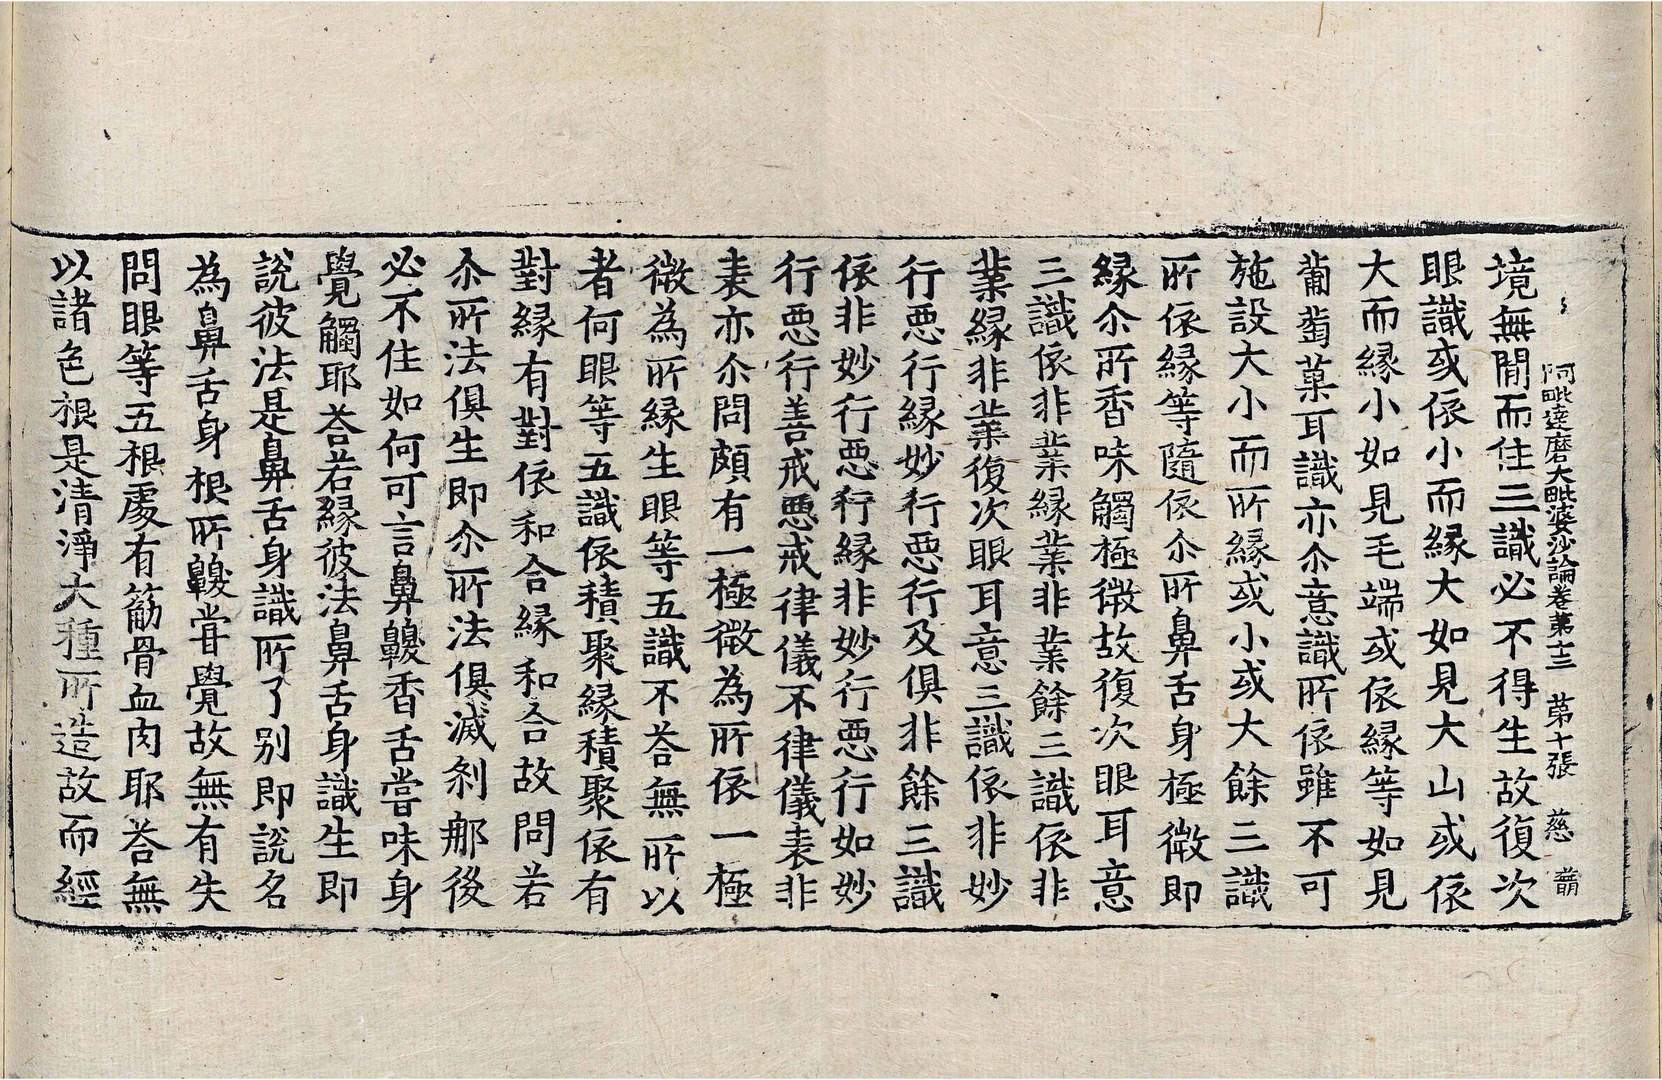 阿毗達磨大毗婆沙論卷第十三　第十張　慈
境無間而住三識必不得生故復次
眼識或依小而緣大如見大山或依
大而緣小如見毛端或依緣等如見
蒱萄菓耳識亦尒意識所依雖不可
施設大小而所緣或小或大餘三識
所依緣等隨依尒所鼻舌身極微即
緣尒所香味觸極微故復次眼耳意
三識依非業緣業非業餘三識依非
業緣非業復次眼耳意三識依非妙
行惡行緣妙行惡行及俱非餘三識
依非妙行惡行緣非妙行惡行如妙
行惡行善戒惡戒律儀不律儀表非
表亦尒問頗有一極微為所依一極
微為所緣生眼等五識不荅無所以
者何眼等五識依積聚緣積聚依有
對緣有對依和合緣和合故問若
尒所法俱生即尒所法俱滅剎那後
必不住如何可言鼻齅香舌嘗味身
覺觸耶荅若緣彼法鼻舌身識生即
說彼法是鼻舌身識所了別即說名
為鼻舌身根所齅甞覺故無有失
問眼等五根處有筋骨血肉耶荅無
以諸色根是清淨大種所造故而經